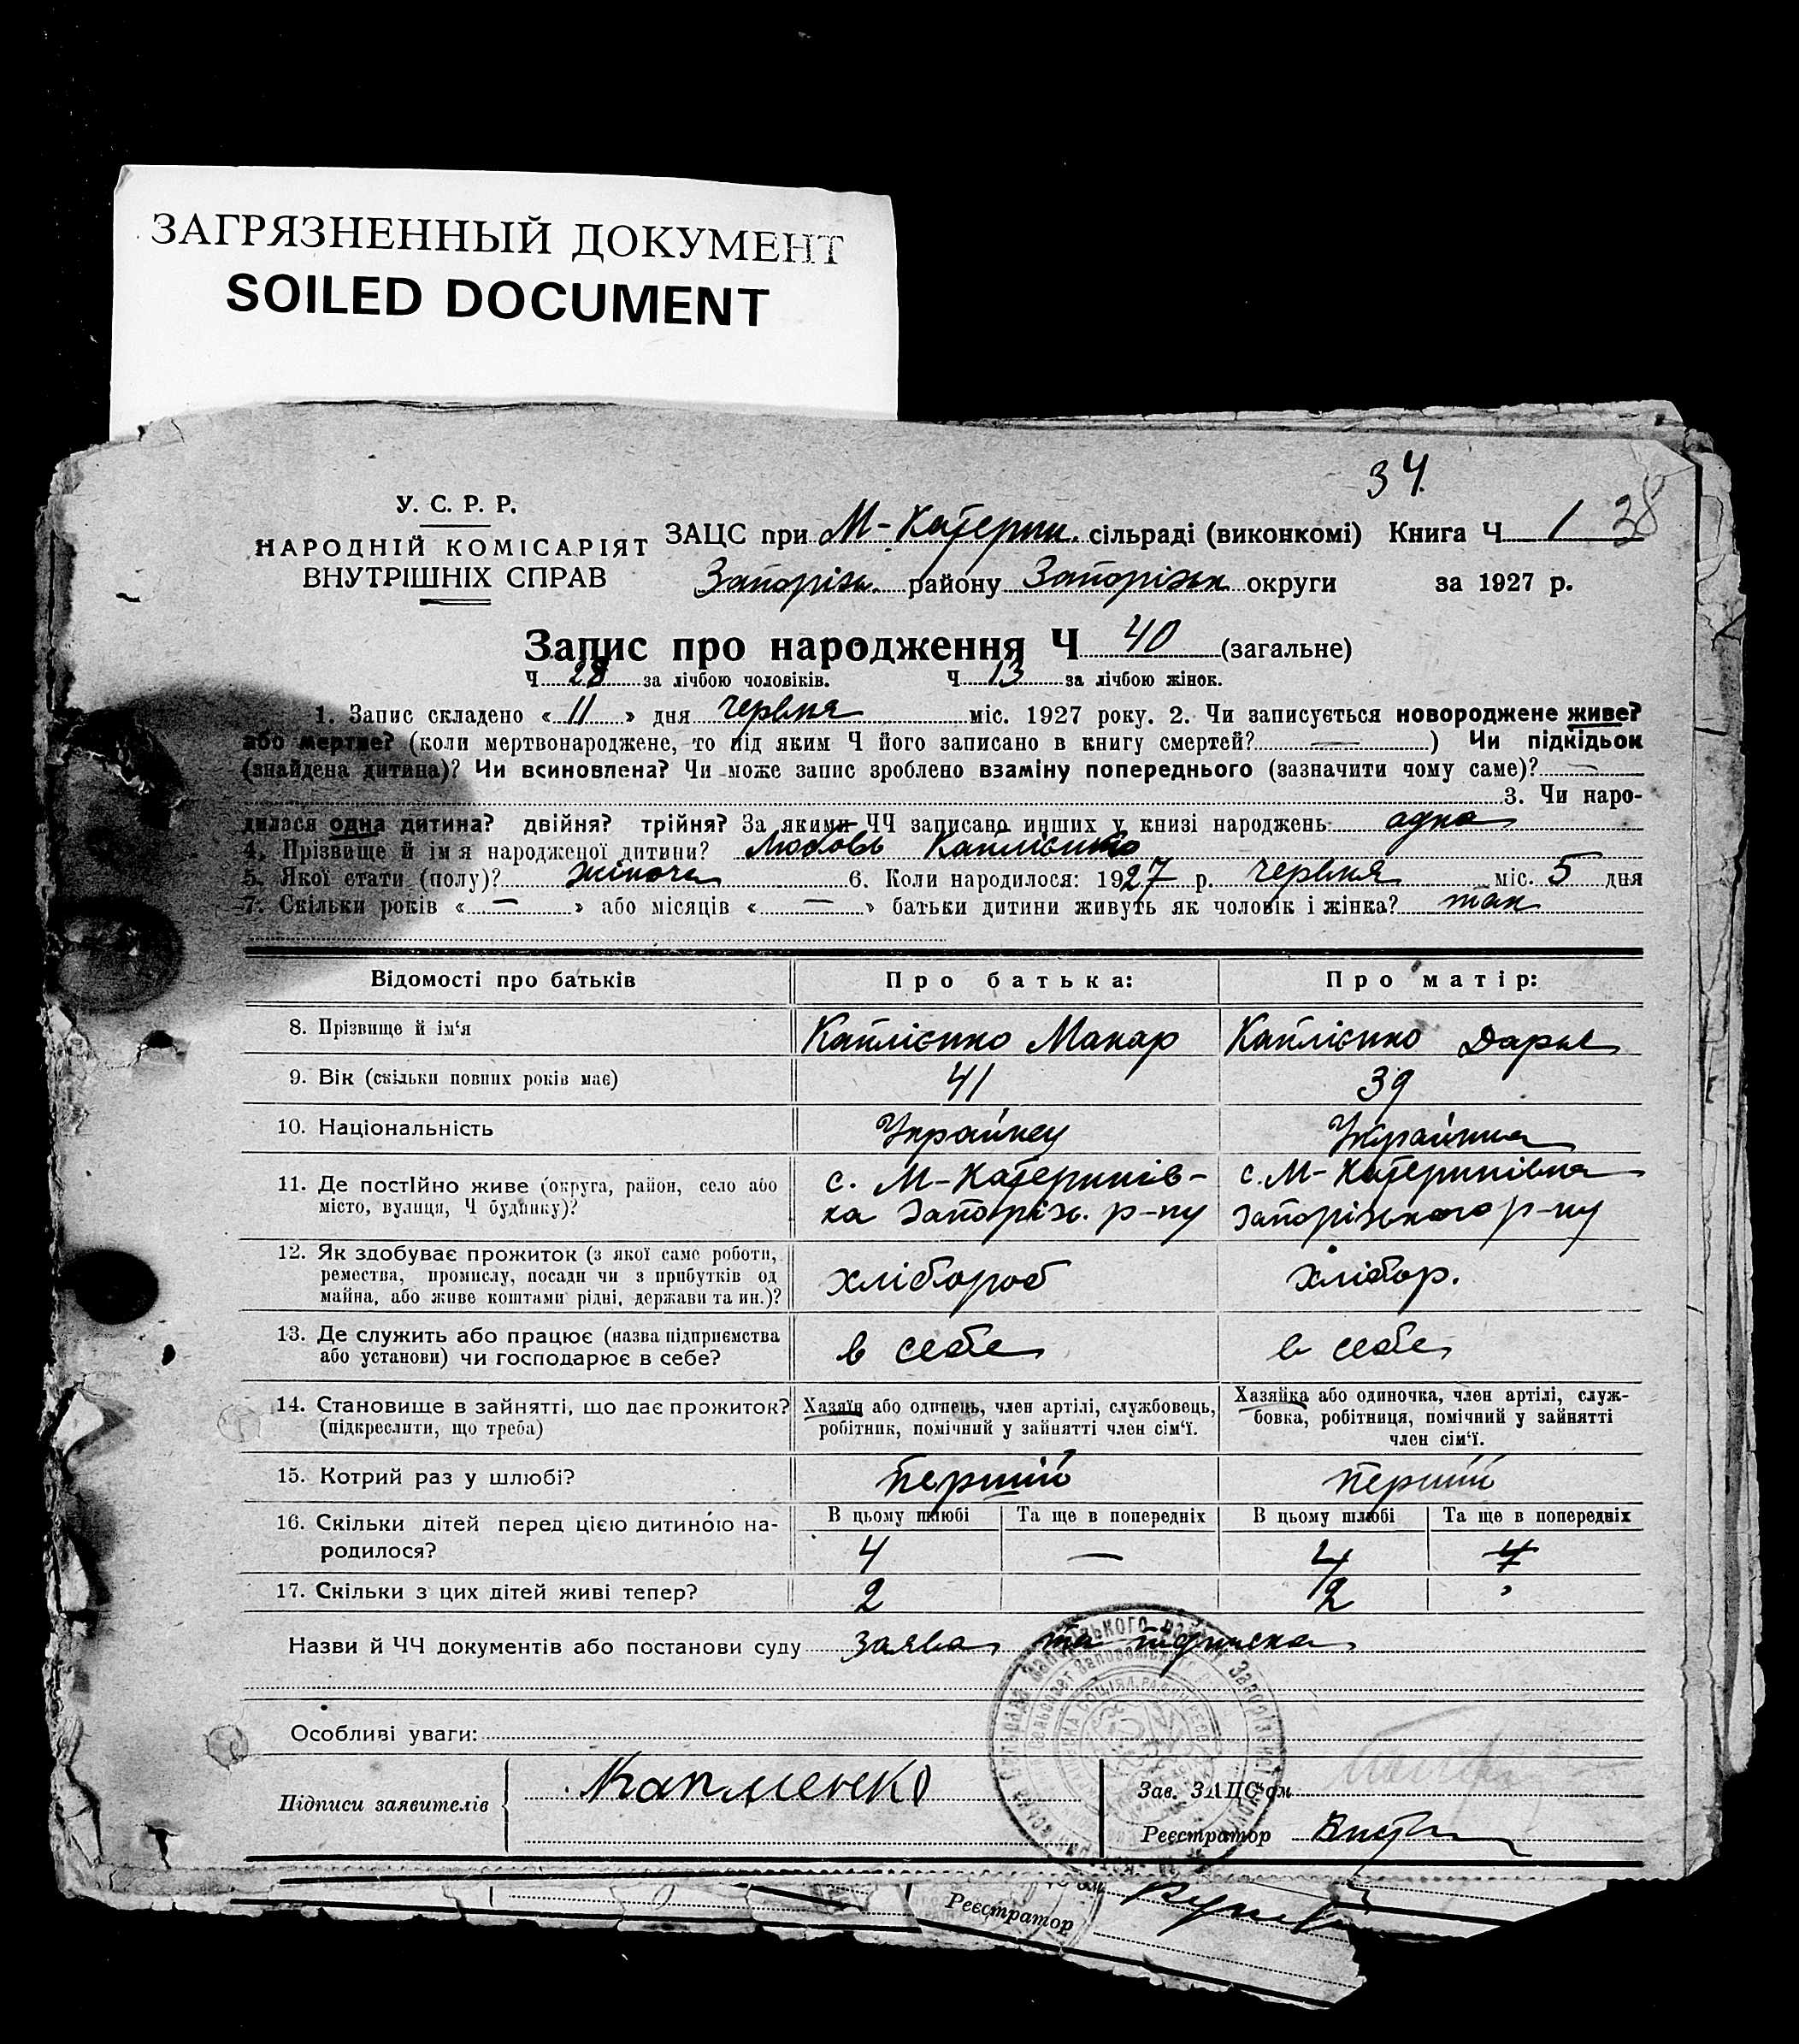 ЗАГРЯЗНЕННЫЙ ДОКУМЕНТ
SOILED DOCUMENT
34.
У. С. Р. Р.
НАРОДНІЙ КОМІСАРІЯТ
ВНУТРІШНІХ СПРАВ
ЗАЦС при М-Катерин. сільраді (виконкомі) Книга Ч 1 38
Запоріж. району Запорізьк округи за 1927 р.
Запис про народження Ч 40 (загальне)
Ч 28 за лічбою чоловіків. Ч 13 за лічбою жінок.
1. Запис складено « 11 » дня червня міс. 1927 року. 2. Чи записується новороджене живе?
або мертве? (коли мертвонароджене, то під яким Ч його записано в книгу смертей? — ) Чи підкідьок
(знайдена дитина)? Чи всиновлена? Чи може запис зроблено взаміну попереднього (зазначити чому саме)? —
3. Чи наро-
дилася одна дитина? двійня? трійня? За якими ЧЧ записано инших у книзі народжень одна
4. Прізвище й ім'я народженої дитини? Любовь Каплієнко
5. Якої стати (полу)? жіноча 6. Коли народилося: 1927 р. червня міс. 5 дня
7. Скільки років « — » або місяців « — » батьки дитини живуть як чоловік і жінка? так
Відомості про батьків Про батька: Про матір:
8. Прізвище й ім'я Каплієнко Макар Каплієнко Дарья
9. Вік (скільки повних років має) 41 39
10. Національність Украйнец Украйнка
11. Де постійно живе (округа, район, село або місто, вулиця, Ч будинку)? с. М-Катеринів- с. М-Катеринівка
ка Запоріж. р-ну Запорізького р-ну
12. Як здобуває прожиток (з якої саме роботи,
ремества, промислу, посади чи з прибутків од хлібороб хлібор.
майна, або живе коштами рідні, держави та ин.)?
13. Де служить або працює (назва підприємства
або установи) чи господарює в себе? в себе в себе
14. Становище в зайнятті, що дає прожиток? Хазяїн або одинець, член артілі, службовець, Хазяйка або одиночка, член артілі, служ-
(підкреслити, що треба) робітник, помічний у зайнятті член сім'ї. бовка, робітниця, помічний у зайнятті
член сім'ї.
15. Котрий раз у шлюбі? Перший Перший
16. Скільки дітей перед цією дитиною на- В цьому шлюбі Та ще в попередніх В цьому шлюбі Та ще в попередніх
родилося? 4 — 4 4
17. Скільки з цих дітей живі тепер? 2 2
Назви й ЧЧ документів або постанови суду заява та підписка
Особливі уваги:
Підписи заявителів Каплиенко
Зав. ЗАЦС'ом
Реєстратор
Реєстратор